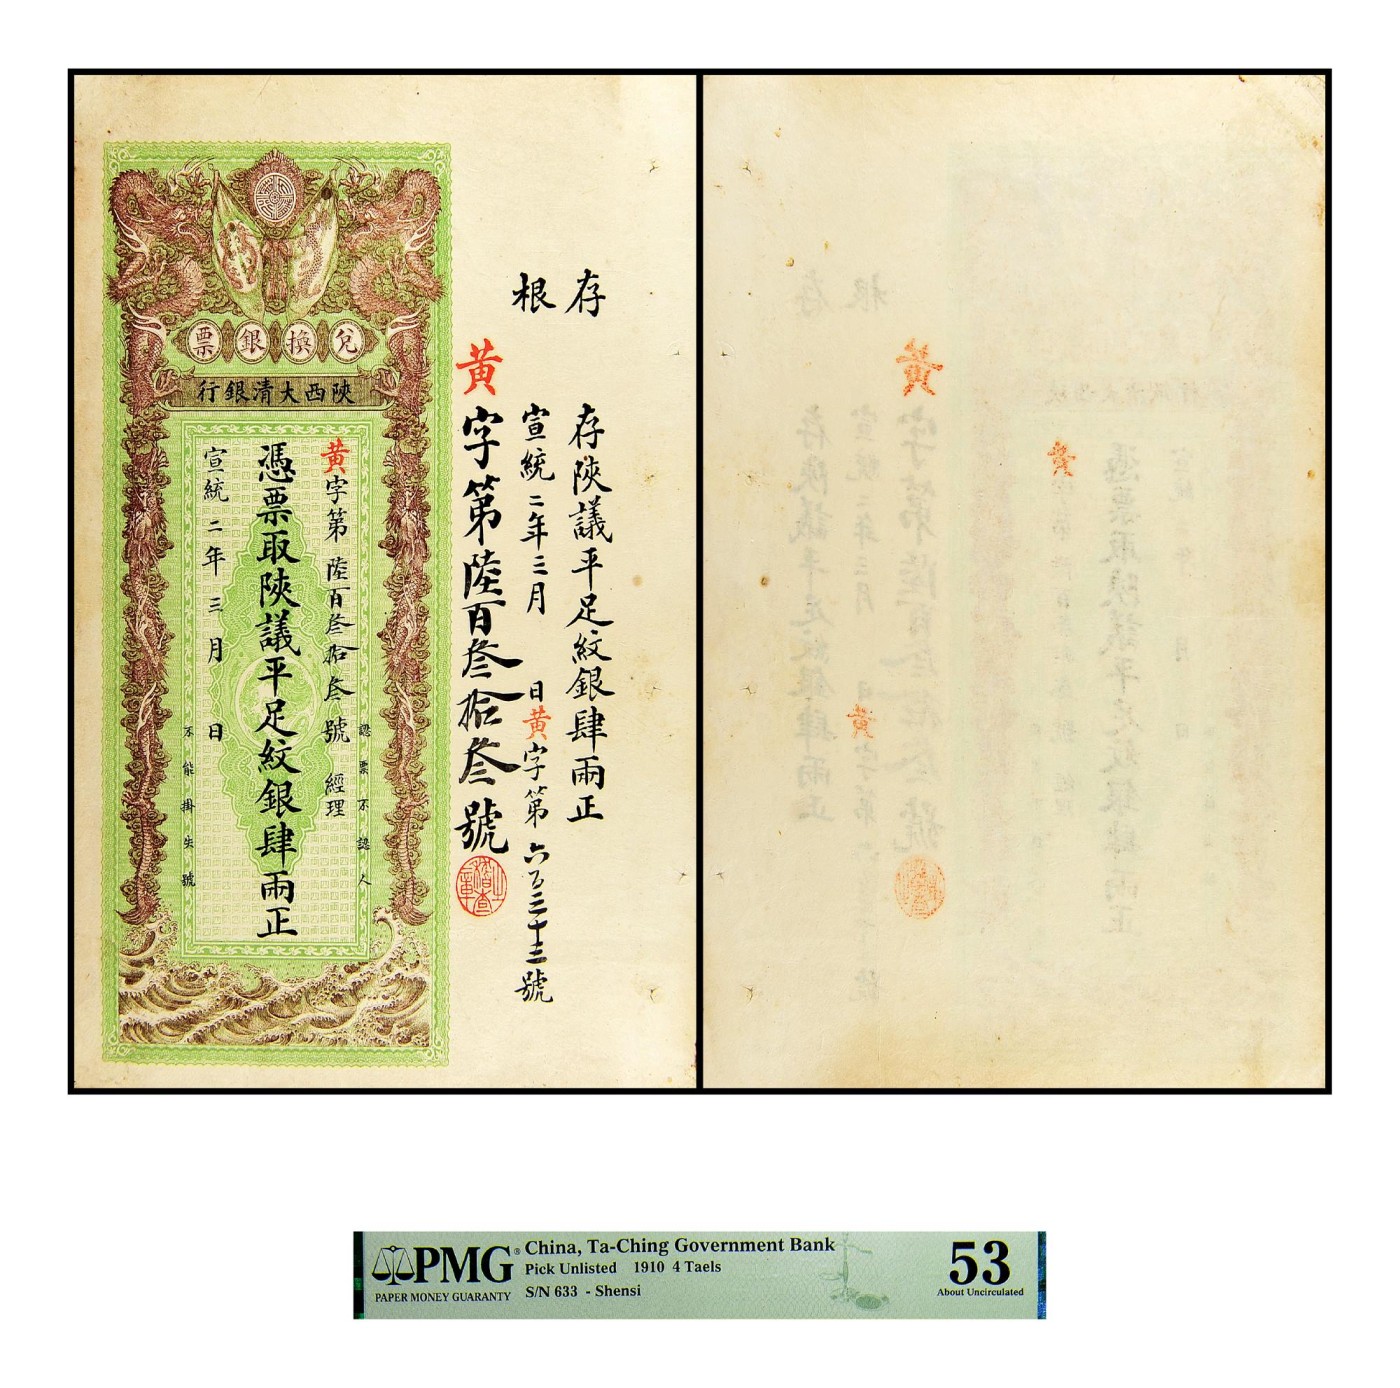 存根
存陝議平足紋銀肆兩正
宣統二年三月 日黃字第六百三十三號
黃字第陸百叁拾叁號
兌換銀票
陝西大清銀行
認票不認人
黃字第陸百叁拾叁號 經理
憑票取陝議平足紋銀肆兩正
宣統二年三月 日
不能掛失號
PMG®
PAPER MONEY GUARANTY
China, Ta-Ching Government Bank
Pick Unlisted 1910 4 Taels
S/N 633 - Shensi
53
About Uncirculated